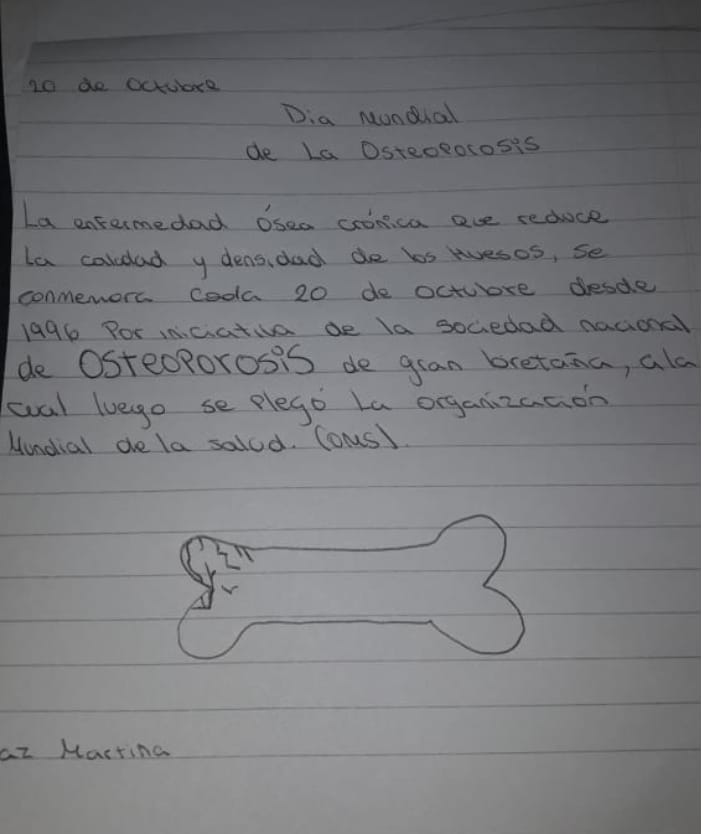 20 de octubre
Dia Mundial
de La Osteoporosis
La enfermedad Ósea crónica que reduce
La calidad y densidad de los huesos, se
conmemora Cada 20 de octubre desde
1996 Por iniciativa de la sociedad nacional
de OSTEOPOROSIS de gran bretaña, a la
cual luego se plegó La organización
Mundial de la salud. (OMS).
az Martina